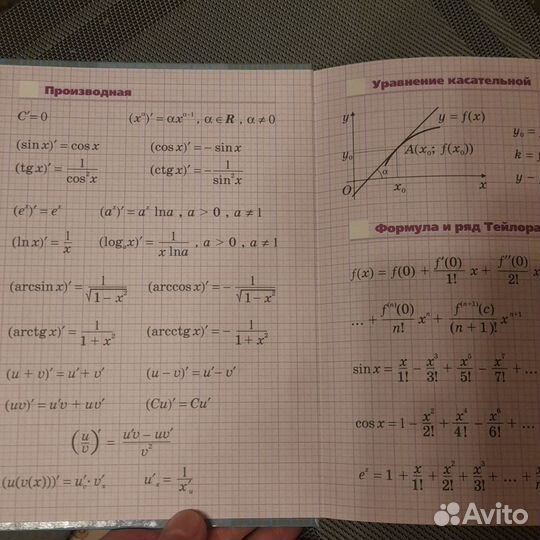 Производная
C′=0
(xᵅ)′ = αxᵅ⁻¹, α ∈ R, α ≠ 0
(sin x)′ = cos x
(cos x)′ = − sin x
(tg x)′ = 1/cos²x
(ctg x)′ = − 1/sin²x
(eˣ)′ = eˣ
(aˣ)′ = aˣ lna , a > 0 , a ≠ 1
(ln x)′ = 1/x
(logₐx)′ = 1/(x lna) , a > 0 , a ≠ 1
(arcsin x)′ = 1/√(1 − x²)
(arccos x)′ = − 1/√(1 − x²)
(arctg x)′ = 1/(1 + x²)
(arcctg x)′ = − 1/(1 + x²)
(u + v)′ = u′ + v′
(u − v)′ = u′ − v′
(uv)′ = u′v + uv′
(Cu)′ = Cu′
(u/v)′ = (u′v − uv′)/v²
(u(v(x)))′ = u′ᵥ · v′ₓ
u′ₓ = 1/x′ᵤ
Уравнение касательной
y
y = f(x)
y₀
A(x₀; f(x₀))
α
O
x₀
x
y₀ =
k =
y −
Формула и ряд Тейлора
f(x) = f(0) + f′(0)/1! x + f″(0)/2! x
... + f⁽ⁿ⁾(0)/n! xⁿ + f⁽ⁿ⁺¹⁾(c)/(n + 1)! xⁿ⁺¹
sin x = x/1! − x³/3! + x⁵/5! − x⁷/7! + ...
cos x = 1 − x²/2! + x⁴/4! − x⁶/6! + ...
eˣ = 1 + x/1! + x²/2! + x³/3! + ... +
Avito